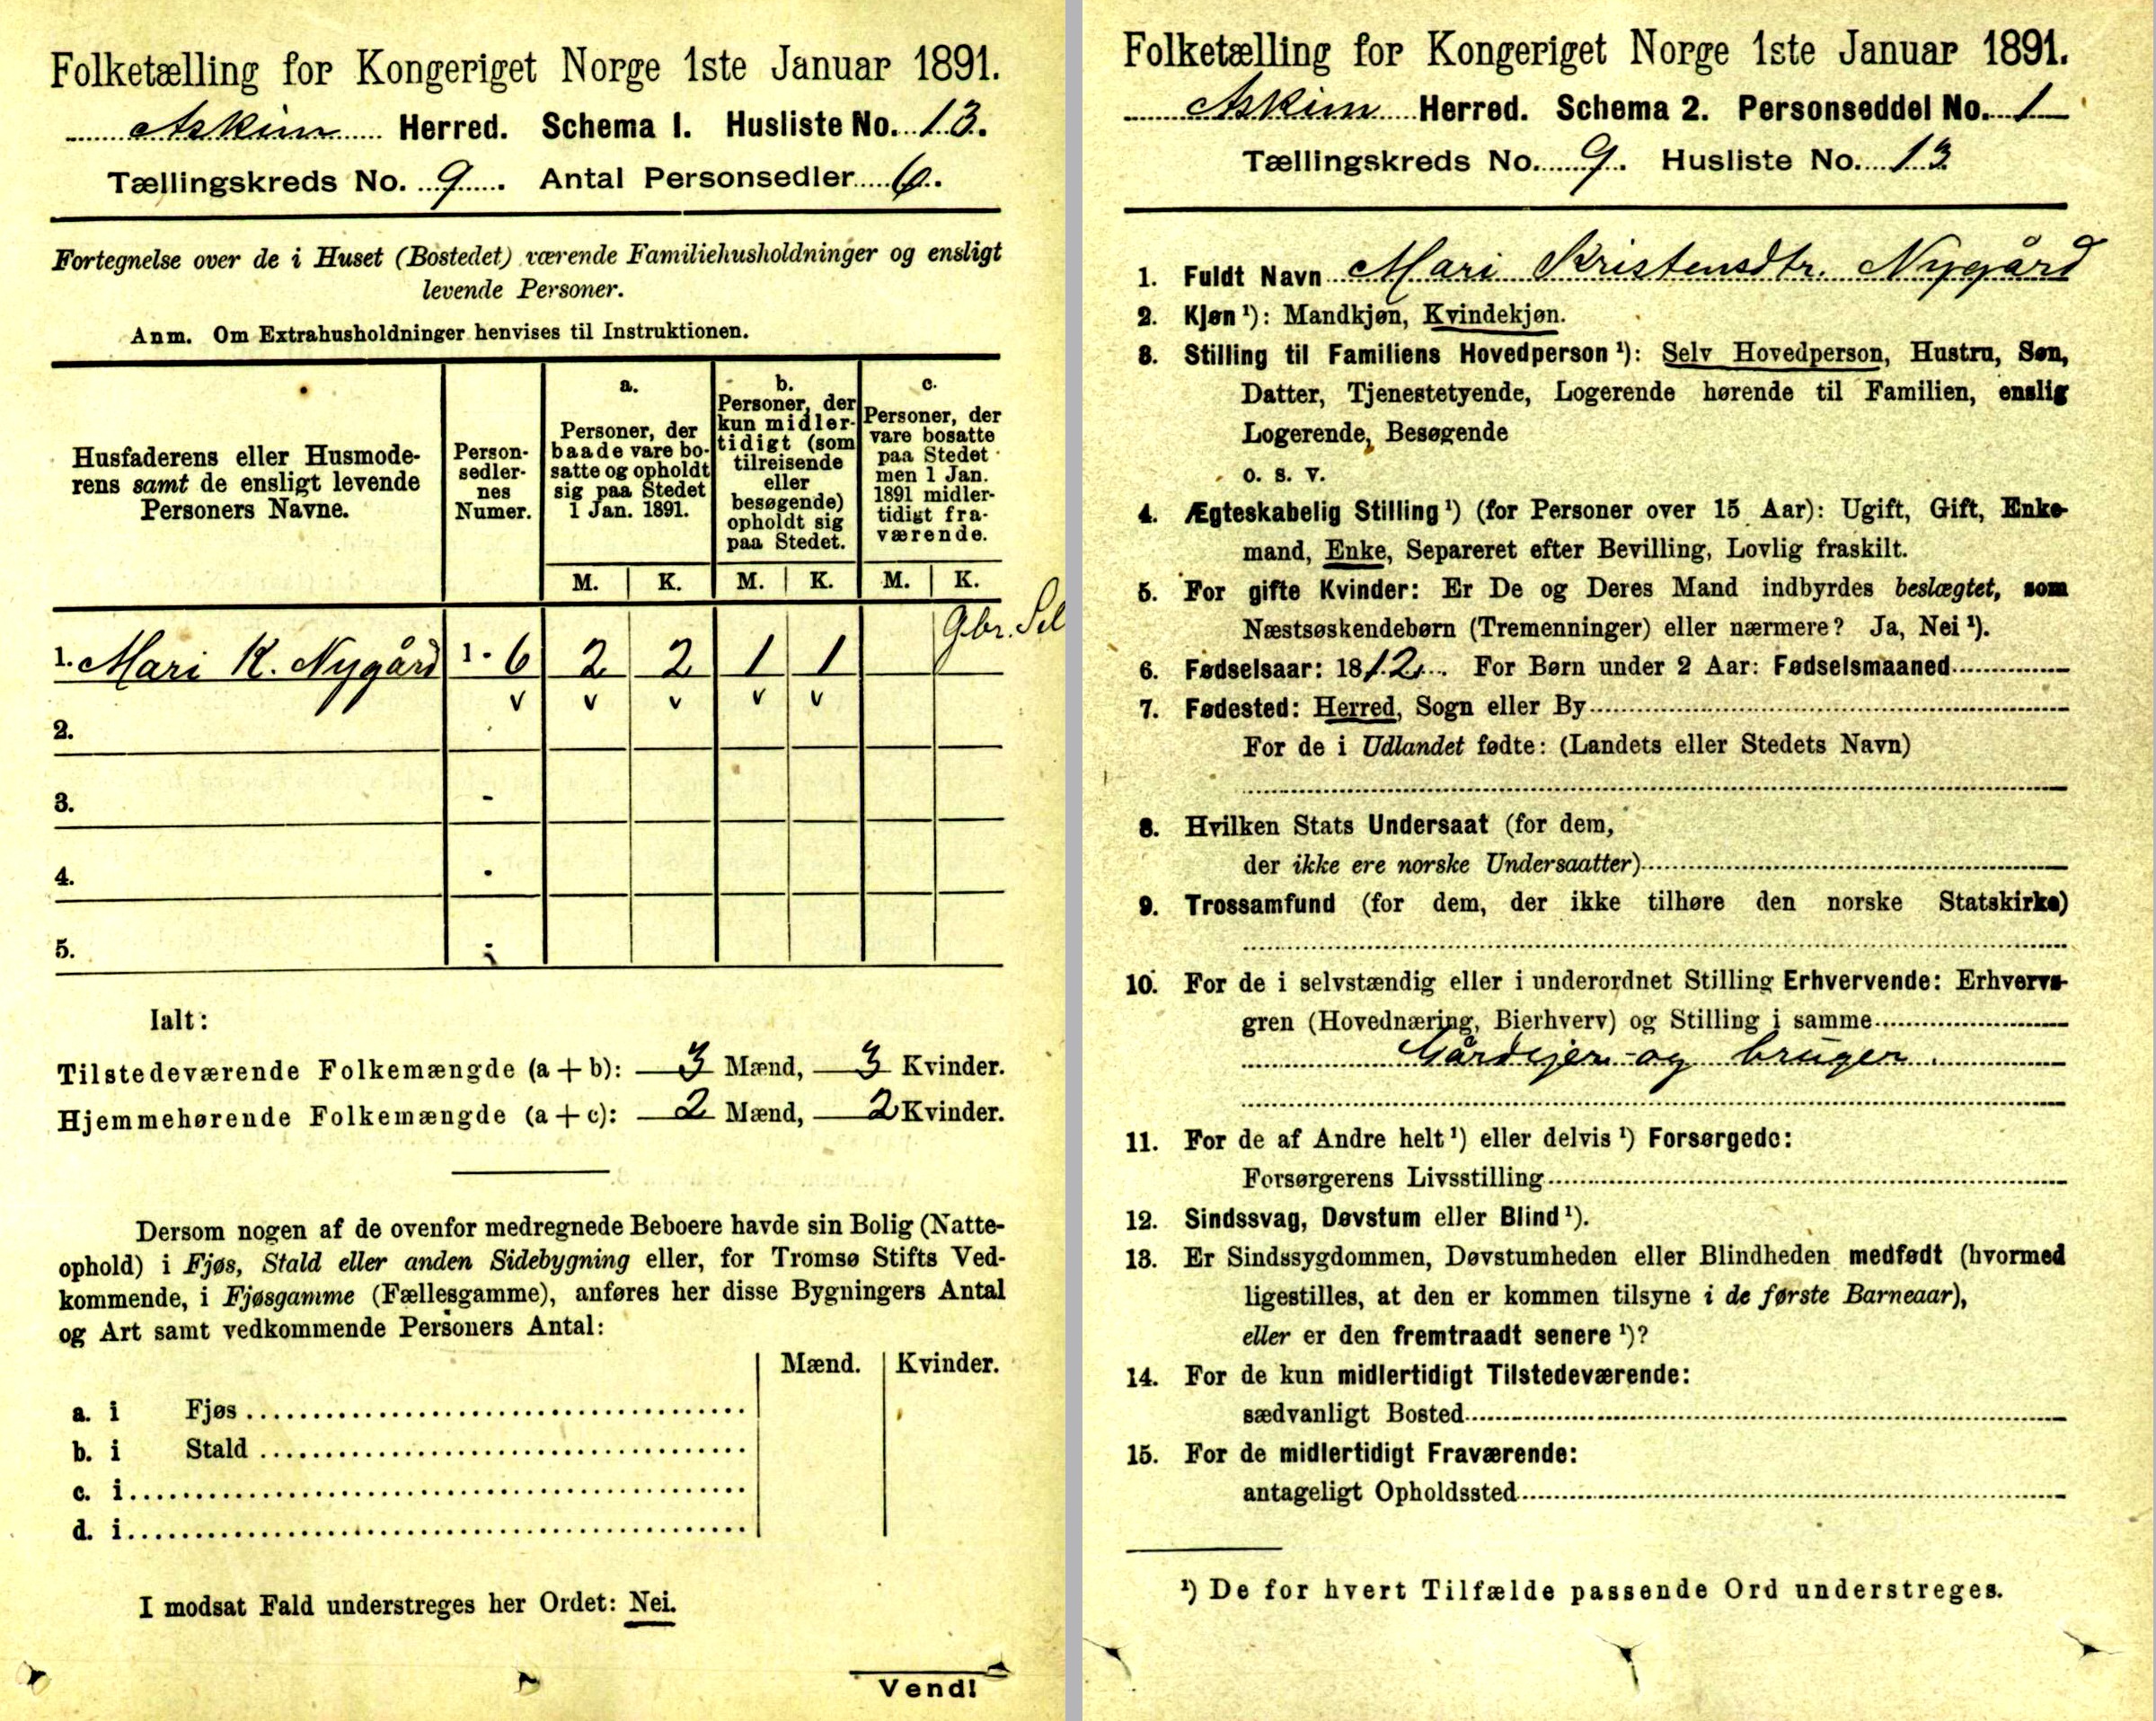 Folketælling for Kongeriget Norge 1ste Januar 1891.
Askim Herred. Schema 1. Husliste No. 13.
Tællingskreds No. 9. Antal Personsedler 6.
Fortegnelse over de i Huset (Bostedet) værende Familiehusholdninger og ensligt
levende Personer.
Anm. Om Extrahusholdninger henvises til Instruktionen.
Husfaderens eller Husmode-
rens samt de ensligt levende
Personers Navne.
Person-
sedler-
nes
Numer.
a.
Personer, der
baade vare bo-
satte og opholdt
sig paa Stedet
1 Jan. 1891.
b.
Personer, der
kun midler-
tidigt (som
tilreisende
eller
besøgende)
opholdt sig
paa Stedet.
c.
Personer, der
vare bosatte
paa Stedet
men 1 Jan.
1891 midler-
tidigt fra-
værende.
M. K. M. K. M. K.
Gbr. Sel
1. Mari K. Nygård 1 - 6 2 2 1 1
v v v v v
2.
3. -
4.
5.
Ialt:
Tilstedeværende Folkemængde (a + b): 3 Mænd, 3 Kvinder.
Hjemmehørende Folkemængde (a + c): 2 Mænd, 2 Kvinder.
Dersom nogen af de ovenfor medregnede Beboere havde sin Bolig (Natte-
ophold) i Fjøs, Stald eller anden Sidebygning eller, for Tromsø Stifts Ved-
kommende, i Fjøsgamme (Fællesgamme), anføres her disse Bygningers Antal
og Art samt vedkommende Personers Antal:
Mænd. Kvinder.
a. i Fjøs
b. i Stald
c. i
d. i
I modsat Fald understreges her Ordet: Nei.
Vend!
Folketælling for Kongeriget Norge 1ste Januar 1891.
Askim Herred. Schema 2. Personseddel No. 1
Tællingskreds No. 9. Husliste No. 13
1. Fuldt Navn Mari Kristensdtr. Nygård
2. Kjøn ¹): Mandkjøn, Kvindekjøn.
3. Stilling til Familiens Hovedperson ¹): Selv Hovedperson, Hustru, Søn,
Datter, Tjenestetyende, Logerende hørende til Familien, enslig
Logerende, Besøgende
o. s. v.
4. Ægteskabelig Stilling ¹) (for Personer over 15 Aar): Ugift, Gift, Enke-
mand, Enke, Separeret efter Bevilling, Lovlig fraskilt.
5. For gifte Kvinder: Er De og Deres Mand indbyrdes beslægtet, som
Næstsøskendebørn (Tremenninger) eller nærmere? Ja, Nei ¹).
6. Fødselsaar: 1812. For Børn under 2 Aar: Fødselsmaaned
7. Fødested: Herred, Sogn eller By
For de i Udlandet fødte: (Landets eller Stedets Navn)
8. Hvilken Stats Undersaat (for dem,
der ikke ere norske Undersaatter)
9. Trossamfund (for dem, der ikke tilhøre den norske Statskirke)
10. For de i selvstændig eller i underordnet Stilling Erhvervende: Erhvervs-
gren (Hovednæring, Bierhverv) og Stilling i samme
Gårdejer og bruger.
11. For de af Andre helt ¹) eller delvis ¹) Forsørgede:
Forsørgerens Livsstilling
12. Sindssvag, Døvstum eller Blind ¹).
13. Er Sindssygdommen, Døvstumheden eller Blindheden medfødt (hvormed
ligestilles, at den er kommen tilsyne i de første Barneaar),
eller er den fremtraadt senere ¹)?
14. For de kun midlertidigt Tilstedeværende:
sædvanligt Bosted
15. For de midlertidigt Fraværende:
antageligt Opholdssted
¹) De for hvert Tilfælde passende Ord understreges.